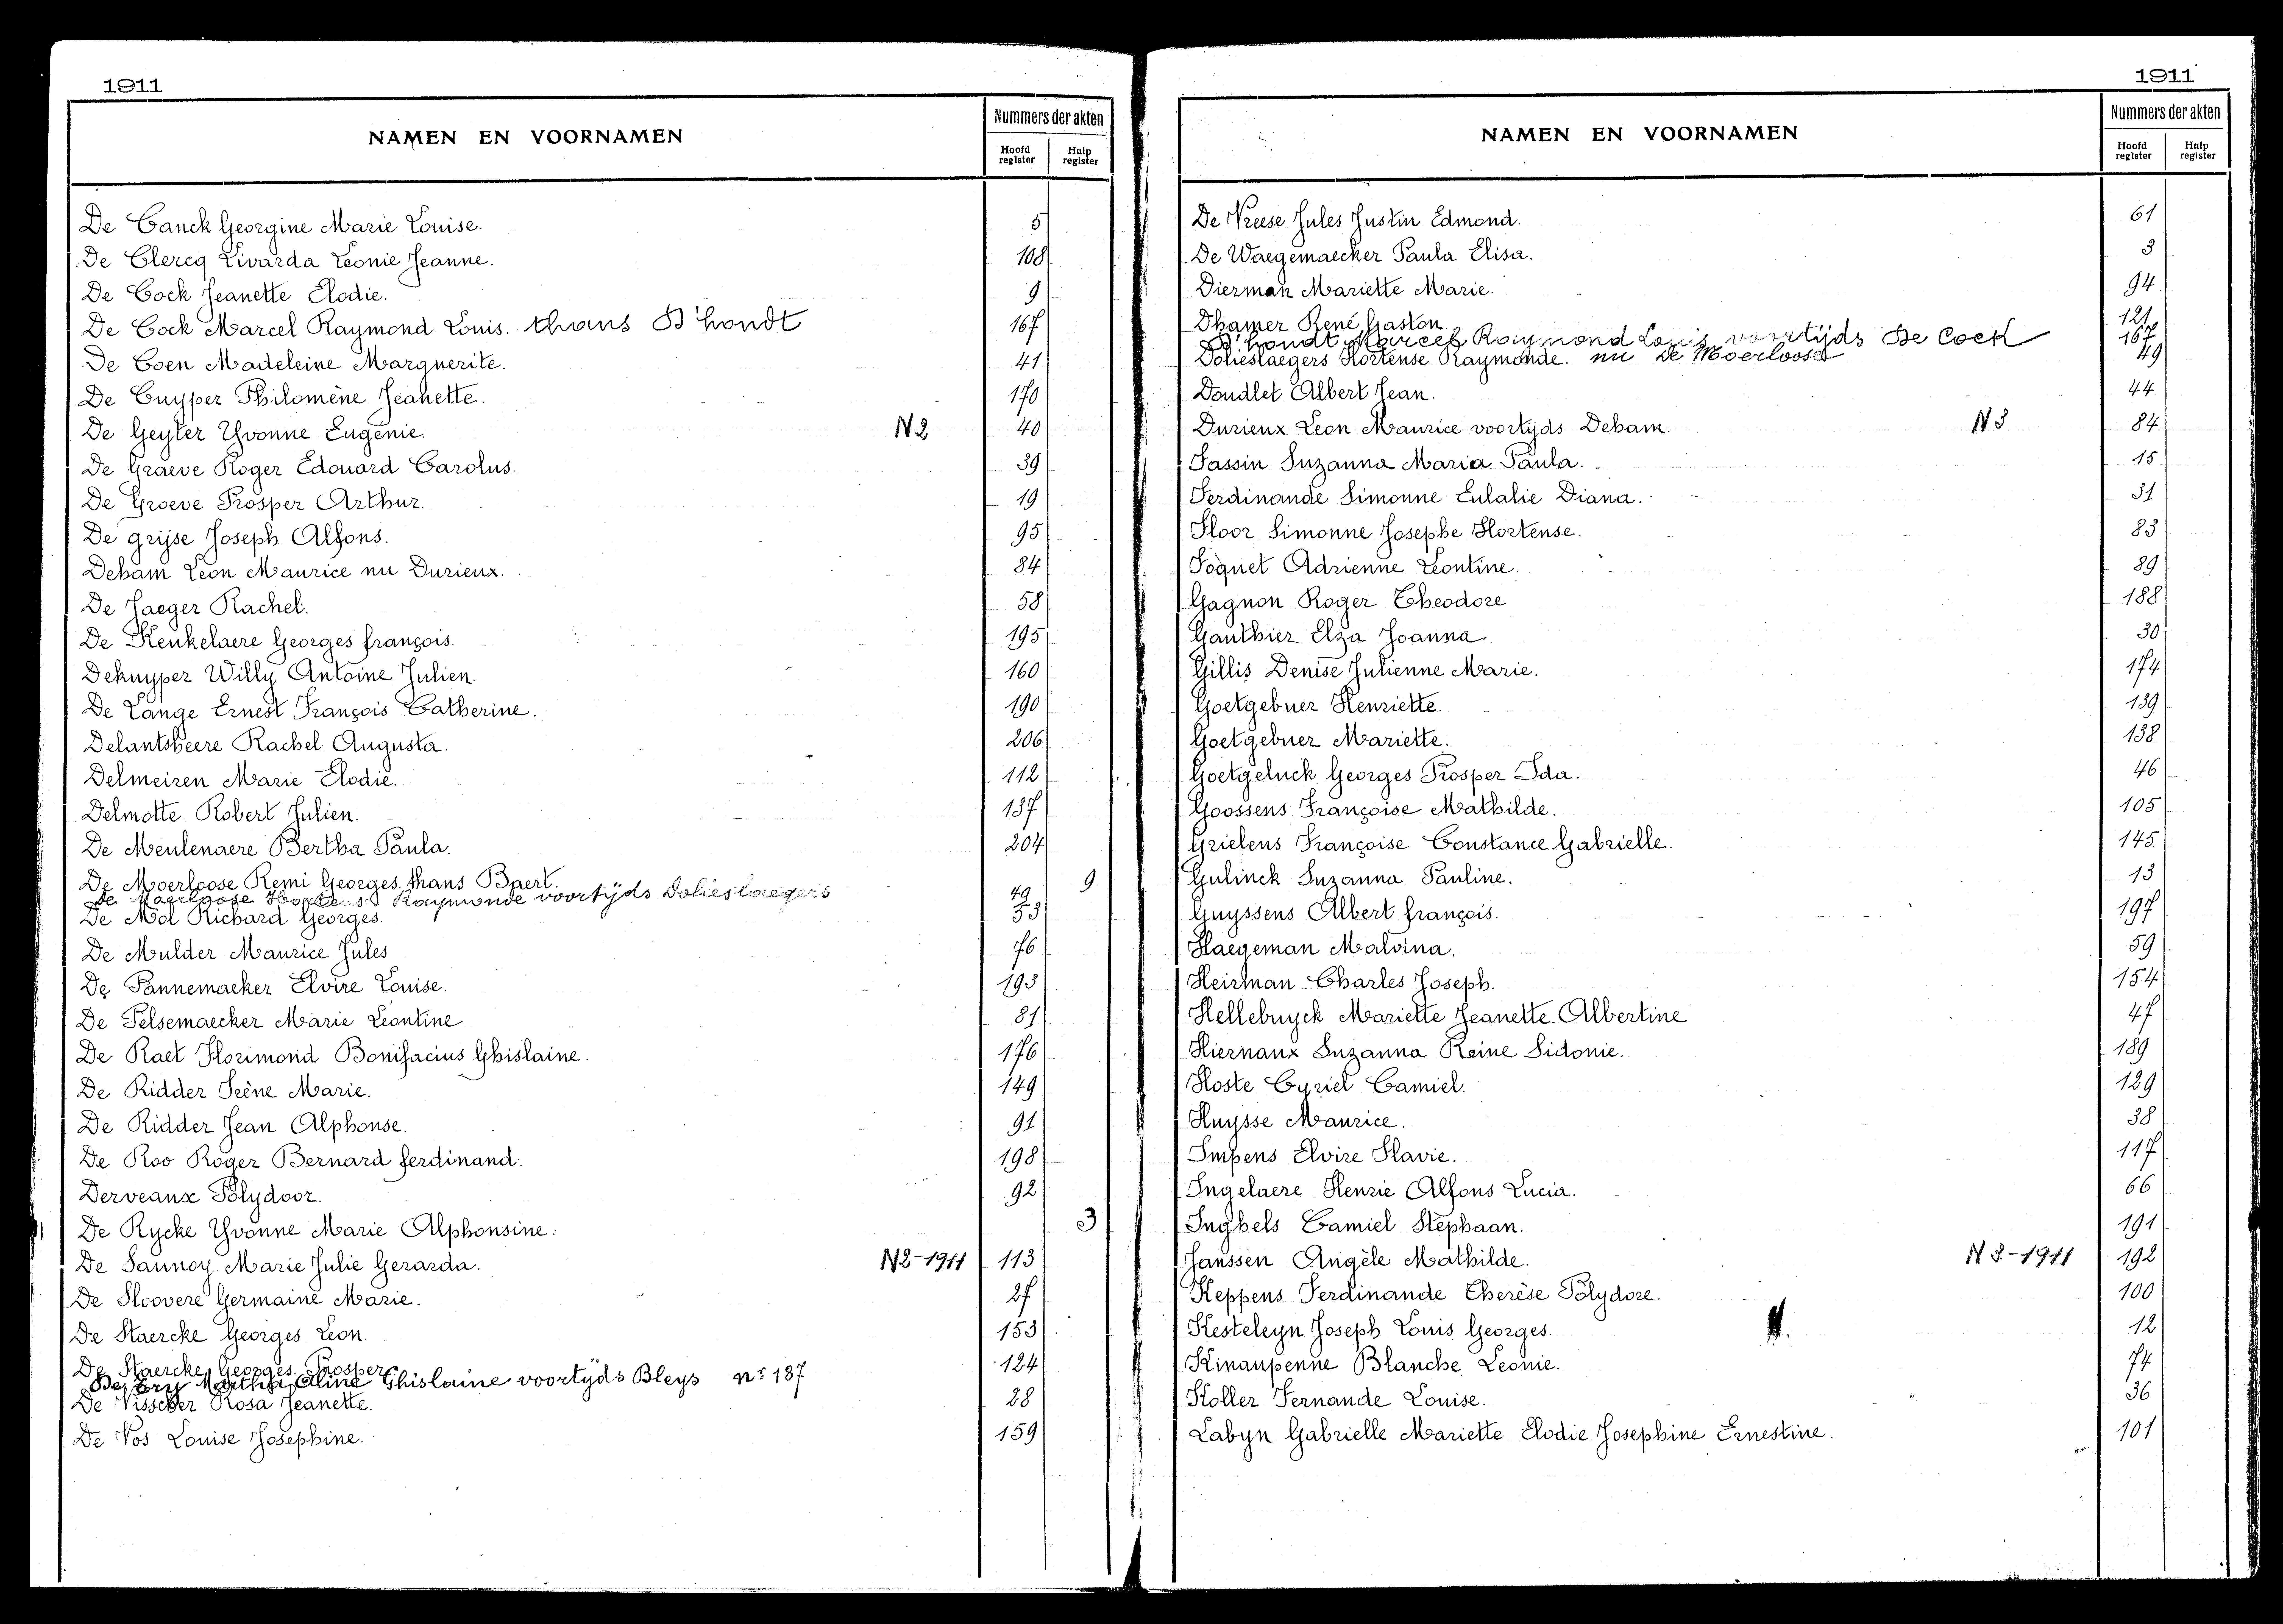 1911
NAMEN EN VOORNAMEN
Nummers der akten
Hoofd register
Hulp register
De Canck Georgine Marie Louise. 5
De Clercq Livarda Leonie Jeanne. 108
De Cock Jeanette Elodie. 9
De Cock Marcel Raymond Louis. thans D'hondt 167
De Coen Madeleine Marguerite. 41
De Cuyper Philomène Jeanette. 170
De Geyter Yvonne Eugenie. N2 40
De Graeve Roger Edouard Carolus. 39
De Groeve Prosper Arthur. 19
De grijse Joseph Alfons. 95
Deham Leon Maurice nu Durieux. 84
De Jaeger Rachel. 58
De Keukelaere Georges françois. 195
Dekuyper Willy Antoine Julien. 160
De Lange Ernest François Catherine. 190
Delantsheere Rachel Augusta. 206
Delmeiren Marie Elodie. 112
Delmotte Robert Julien. 137
De Meulenaere Bertha Paula. 204
De Moerloose Remi Georges. thans Baert. 9
De Moerloose Hortense Raymonde voortijds Dolieslaegers 49
De Mol Richard Georges. 53
De Mulder Maurice Jules 76
De Pannemaeker Elvire Louise. 193
De Pelsemaecker Marie Leontine 81
De Raet Florimond Bonifacius Ghislaine. 176
De Ridder Irène Marie. 149
De Ridder Jean Alphonse. 91
De Roo Roger Bernard ferdinand. 198
Derveaux Polydoor. 92
De Rycke Yvonne Marie Alphonsine. 3
De Sannoy Marie Julie Gerarda. N2-1911 113
De Sloovere Germaine Marie. 27
De Staercke Georges Leon. 153
De Staercke Georges Prosper. 124
Martha Aline Ghislaine voortijds Bleys nr 187
De Visscher Rosa Jeanette. 28
De Vos Louise Josephine. 159
1911
NAMEN EN VOORNAMEN
Nummers der akten
Hoofd register
Hulp register
De Vreese Jules Justin Edmond. 61
De Waegemaecker Paula Elisa. 3
Dierman Mariette Marie. 94
Dhamer René Gaston. 121
D'hondt Marcel Raymond Louis voortijds De Cock 167
Dolieslaegers Hortense Raymonde. nu De Moerloose 49
Doudlet Albert Jean. 44
Durieux Leon Maurice voortijds Deham. N3 84
Fassin Suzanna Maria Paula. 15
Ferdinande Simonne Eulalie Diana. 31
Floor Simonne Josephe Hortense. 83
Foquet Adrienne Leontine. 89
Gagnon Roger Theodore 188
Gauthier Elza Joanna. 30
Gillis Denise Julienne Marie. 174
Goetgebuer Henriette. 139
Goetgebuer Mariette. 138
Goetgeluck Georges Prosper Ida. 46
Goossens Françoise Mathilde. 105
Grielens Françoise Constance Gabrielle. 145
Gulinck Suzanna Pauline. 13
Guyssens Albert françois. 197
Haegeman Malvina. 59
Heirman Charles Joseph. 154
Hellebuyck Mariette Jeanette Albertine 47
Hiernaux Suzanna Reine Sidonie. 189
Hoste Cyriel Camiel. 129
Huysse Maurice. 38
Impens Elvire Flavie. 117
Ingelaere Henrie Alfons Lucia. 66
Inghels Camiel Stephaan. 191
Janssen Angèle Mathilde. N3-1911 192
Keppens Ferdinande Therèse Polydore. 100
Kesteleyn Joseph Louis Georges. 12
Kinaupenne Blanche Leonie. 74
Koller Fernande Louise. 36
Labyn Gabrielle Mariette Elodie Josephine Ernestine. 101